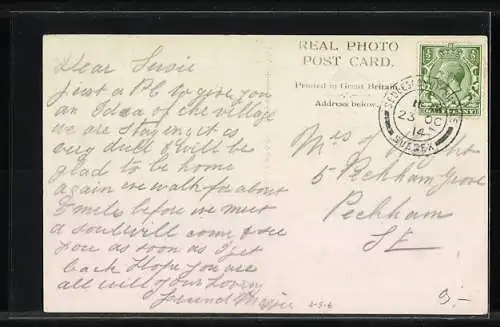 Dear Susie
just a PC to give you
an Idea of the village
we are Staying it is
very dull & will be
glad to be home
again we walk for about
5 miles before we meet
a soul will come & see
you as soon as I get
back Hope you are
all well your loving
friend
REAL PHOTO
POST CARD.
Printed in Great Britain
Address below.
Mrs
5 Peckham Grove
Peckham
SE
23 OC
14
SUSSEX
2-5-6
3.-